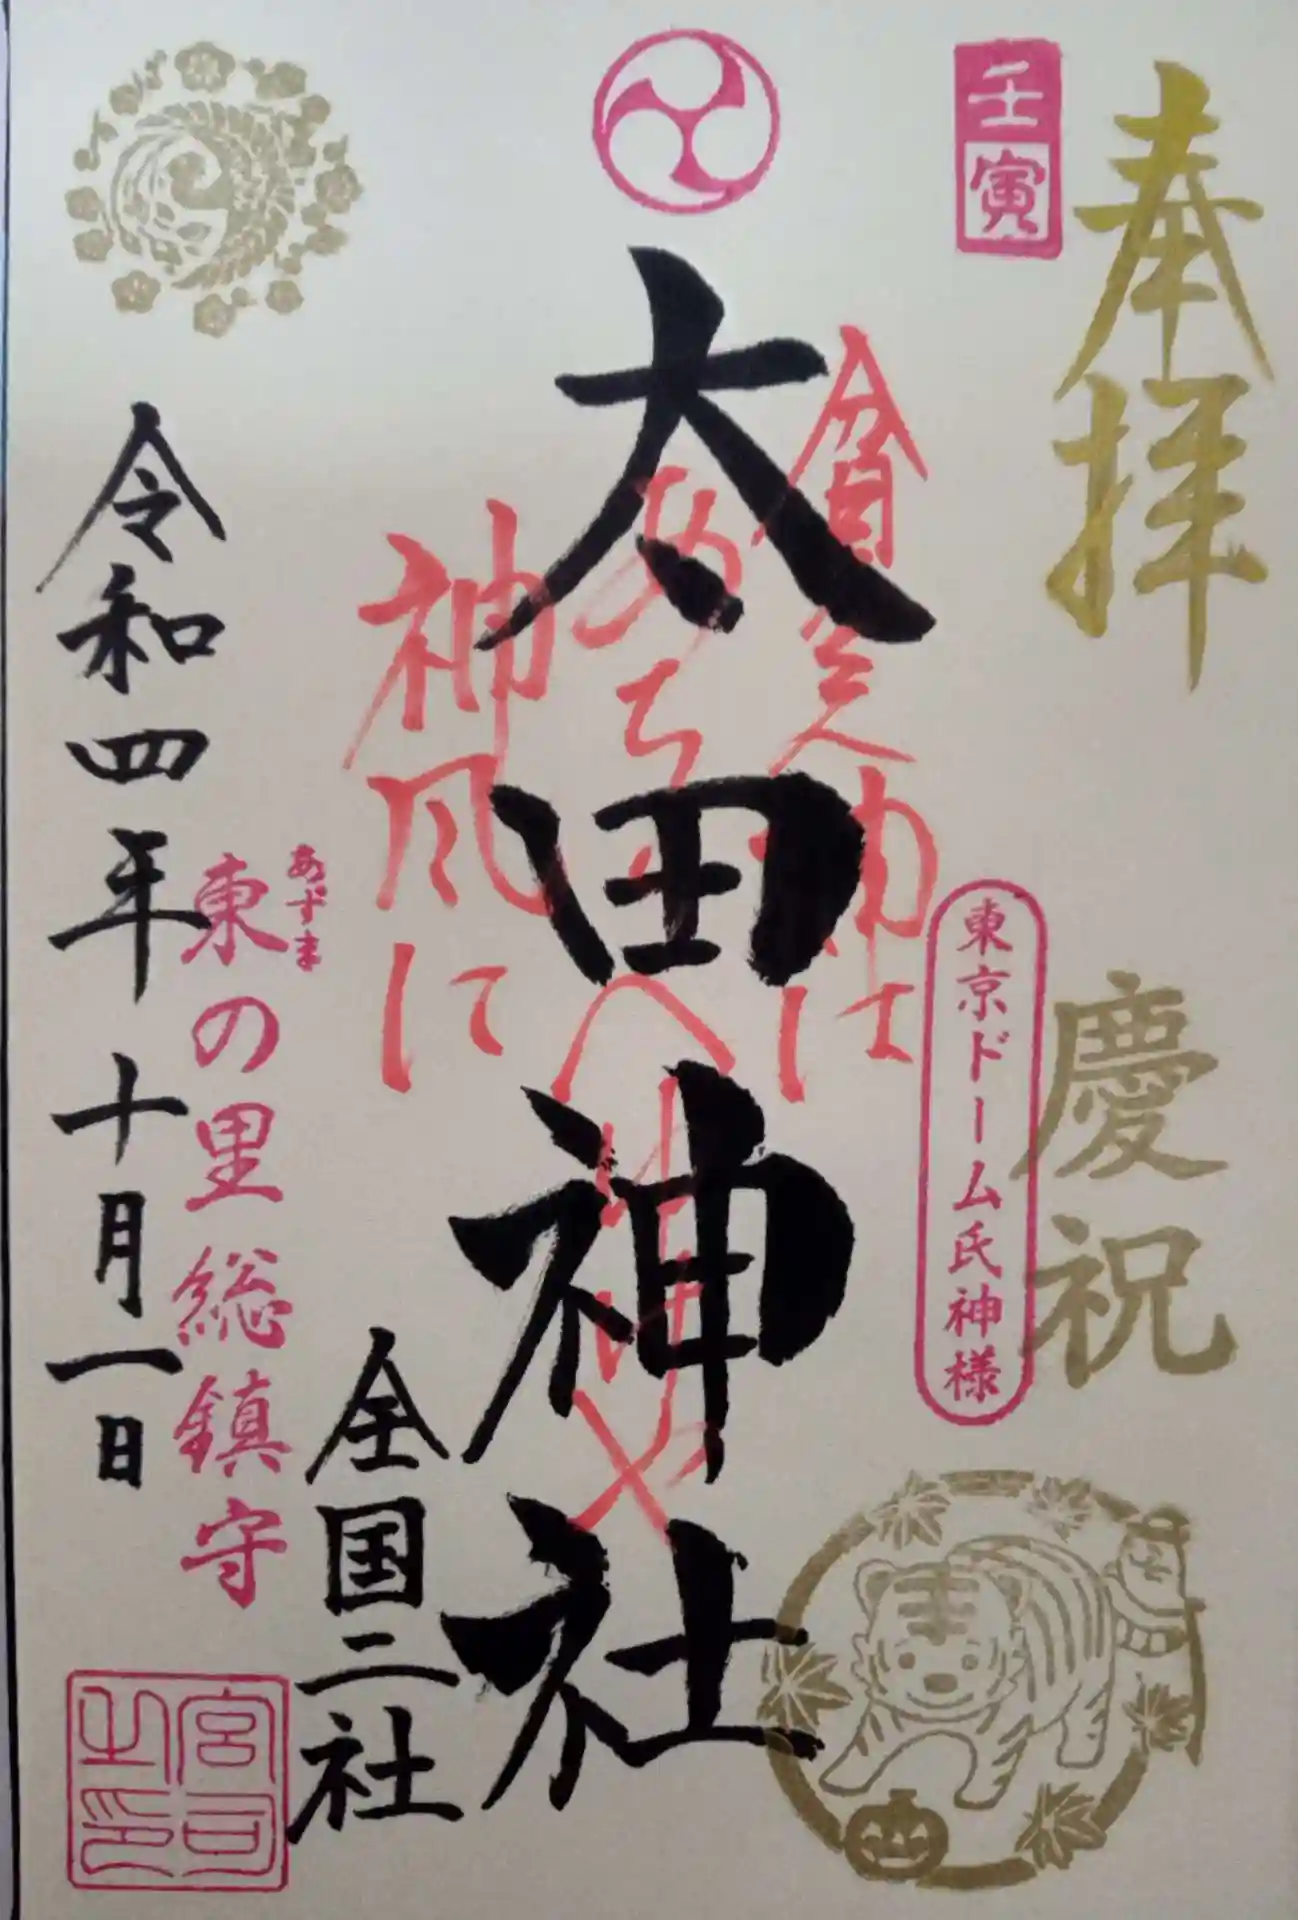 奉拝
慶祝
壬寅
東京ドーム氏神様
貧乏神は
あちらへ
神風に
太田神社
全国二社
あずま
東の里総鎮守
令和四年十月一日
宮司
之印